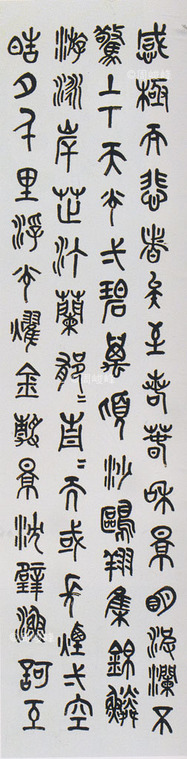 感極而悲者矣至若春和景明波瀾不
驚上下天光弌碧萬頃沙鷗翔集錦鱗
游泳岸芷汀蘭郁〻青〻而或長煙弌空
晧月千里浮光燿金靜景沈璧漁訶互